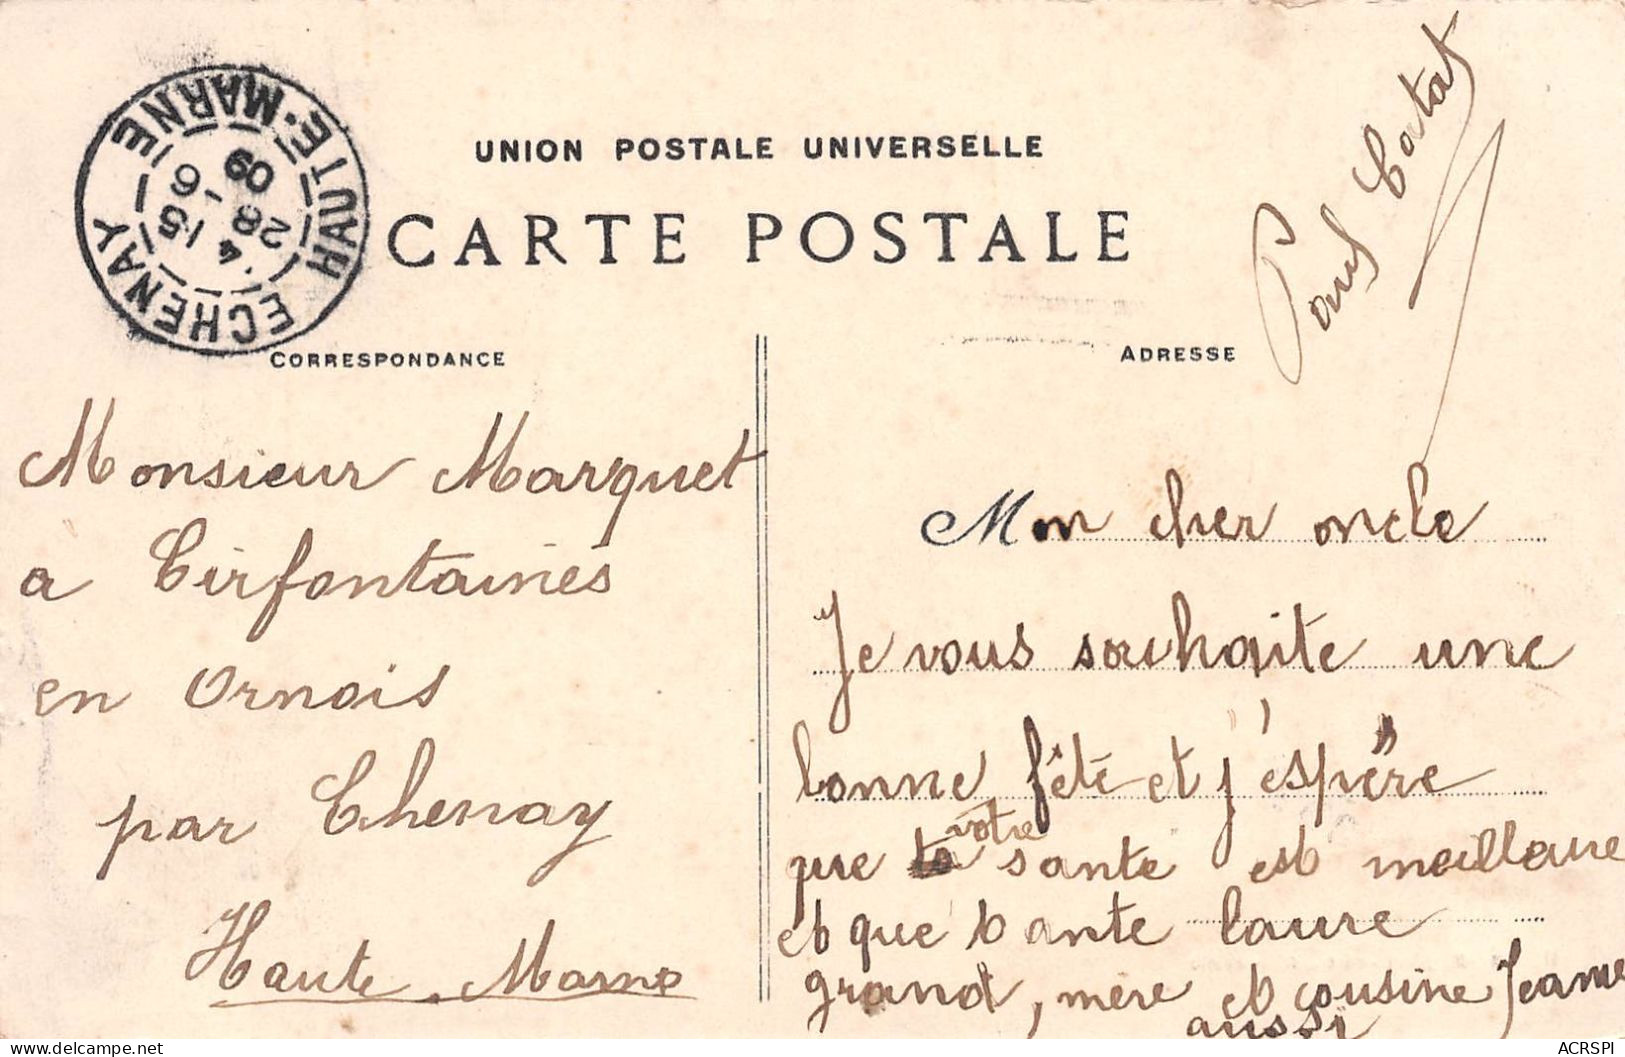 UNION POSTALE UNIVERSELLE
CARTE POSTALE
ECHENAY HAUTE-MARNE
15 4
28 -6
09
CORRESPONDANCE
ADRESSE
Monsieur Marquet
a Cirfontaines
en Ornois
par Chenay
Haute-Marne
Paul
Mon cher oncle
Je vous souhaite une
bonne fête et j'éspère
que votre sante est meilleure
et que tante laure
grand, mère et cousine Jeanne
aussi
ACRSPI